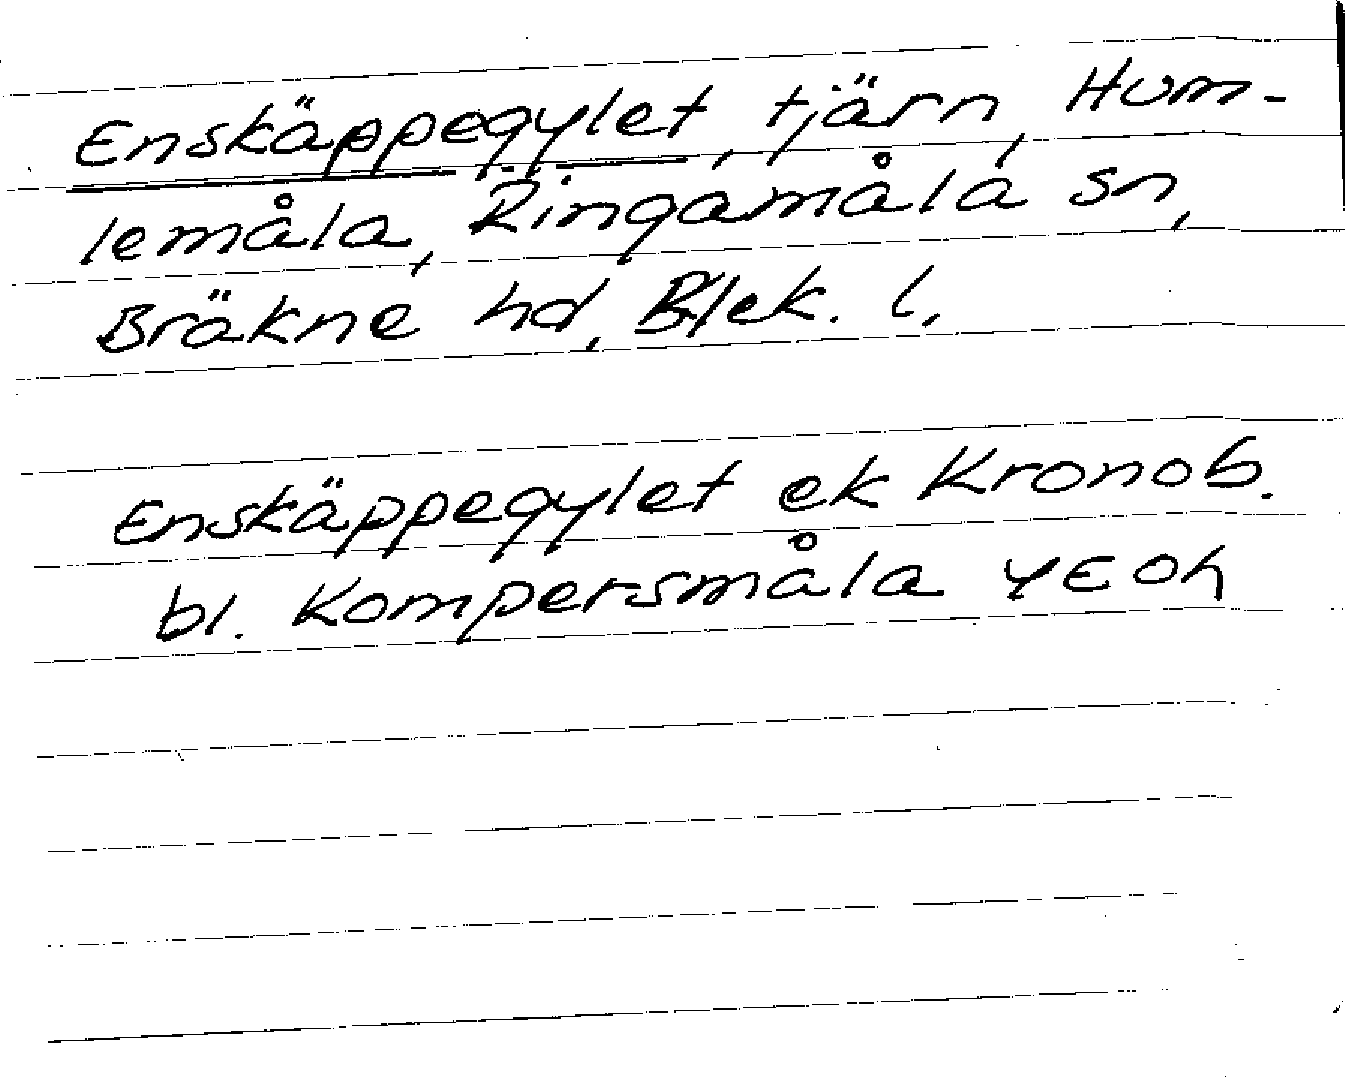 Enskäppegylet, tjärn, Hum-
lemåla, Ringamåla sn,
Bräkne hd, Blek. l.
Enskäppegylet ek Kronob.
bl. Kompersmåla YEOh